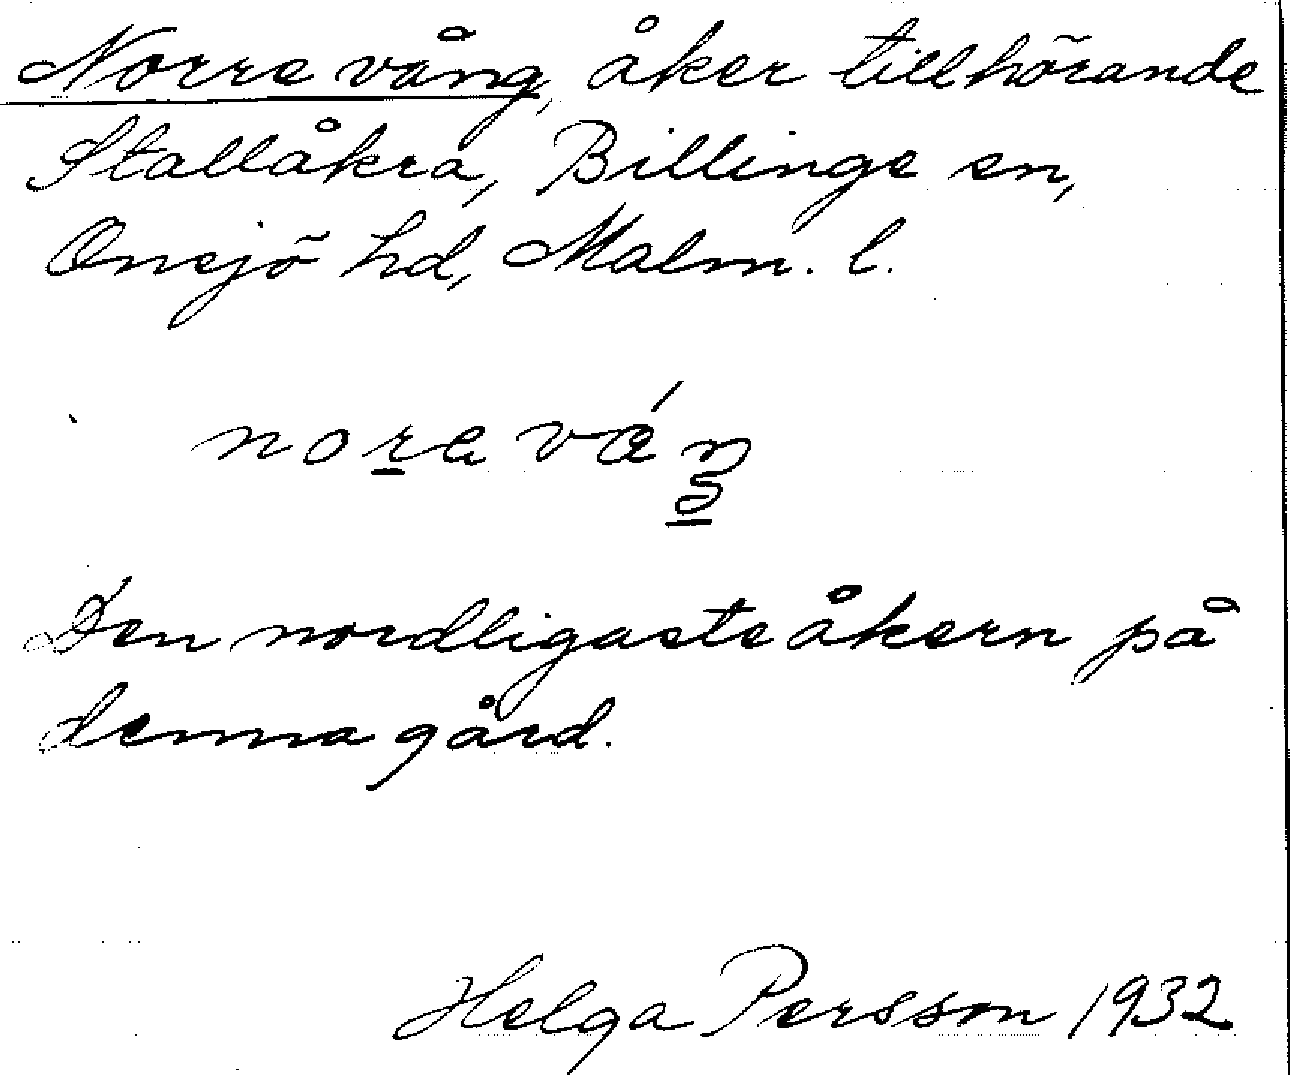 Norre vång, åker tillhörande
Stallåkra, Billinge sn,
Onsjö hd, Malm. l.
Den nordligaste åkern på
denna gård.
Helga Persson 1932